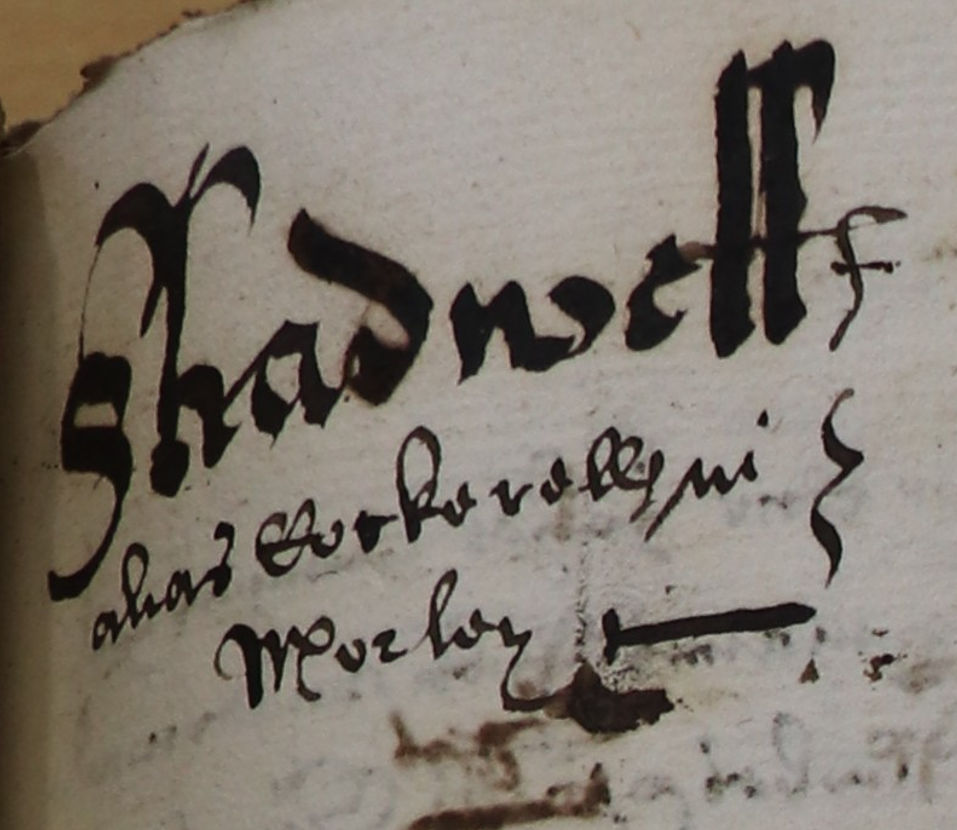 Shadwell
alias Cockerells in
Morley